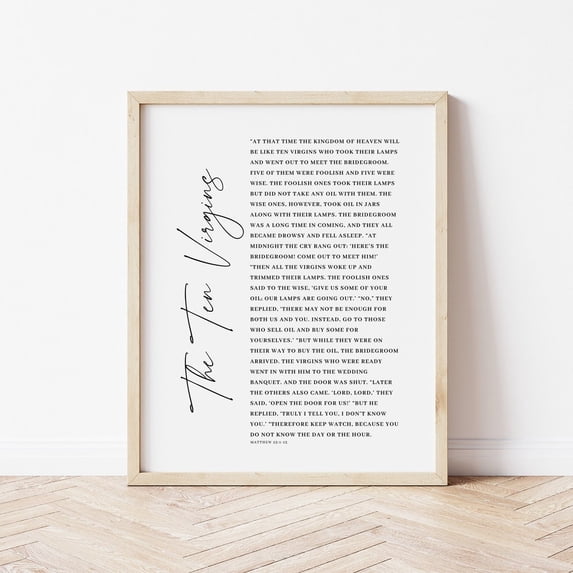 The Ten Virgins
"AT THAT TIME THE KINGDOM OF HEAVEN WILL
BE LIKE TEN VIRGINS WHO TOOK THEIR LAMPS
AND WENT OUT TO MEET THE BRIDEGROOM.
FIVE OF THEM WERE FOOLISH AND FIVE WERE
WISE. THE FOOLISH ONES TOOK THEIR LAMPS
BUT DID NOT TAKE ANY OIL WITH THEM. THE
WISE ONES, HOWEVER, TOOK OIL IN JARS
ALONG WITH THEIR LAMPS. THE BRIDEGROOM
WAS A LONG TIME IN COMING, AND THEY ALL
BECAME DROWSY AND FELL ASLEEP. "AT
MIDNIGHT THE CRY RANG OUT: 'HERE'S THE
BRIDEGROOM! COME OUT TO MEET HIM!'
"THEN ALL THE VIRGINS WOKE UP AND
TRIMMED THEIR LAMPS. THE FOOLISH ONES
SAID TO THE WISE, 'GIVE US SOME OF YOUR
OIL; OUR LAMPS ARE GOING OUT.' "NO," THEY
REPLIED, 'THERE MAY NOT BE ENOUGH FOR
BOTH US AND YOU. INSTEAD, GO TO THOSE
WHO SELL OIL AND BUY SOME FOR
YOURSELVES.' "BUT WHILE THEY WERE ON
THEIR WAY TO BUY THE OIL, THE BRIDEGROOM
ARRIVED. THE VIRGINS WHO WERE READY
WENT IN WITH HIM TO THE WEDDING
BANQUET. AND THE DOOR WAS SHUT. "LATER
THE OTHERS ALSO CAME. 'LORD, LORD,' THEY
SAID, 'OPEN THE DOOR FOR US!' "BUT HE
REPLIED, 'TRULY I TELL YOU, I DON'T KNOW
YOU.' "THEREFORE KEEP WATCH, BECAUSE YOU
DO NOT KNOW THE DAY OR THE HOUR.
MATTHEW 25:1-13